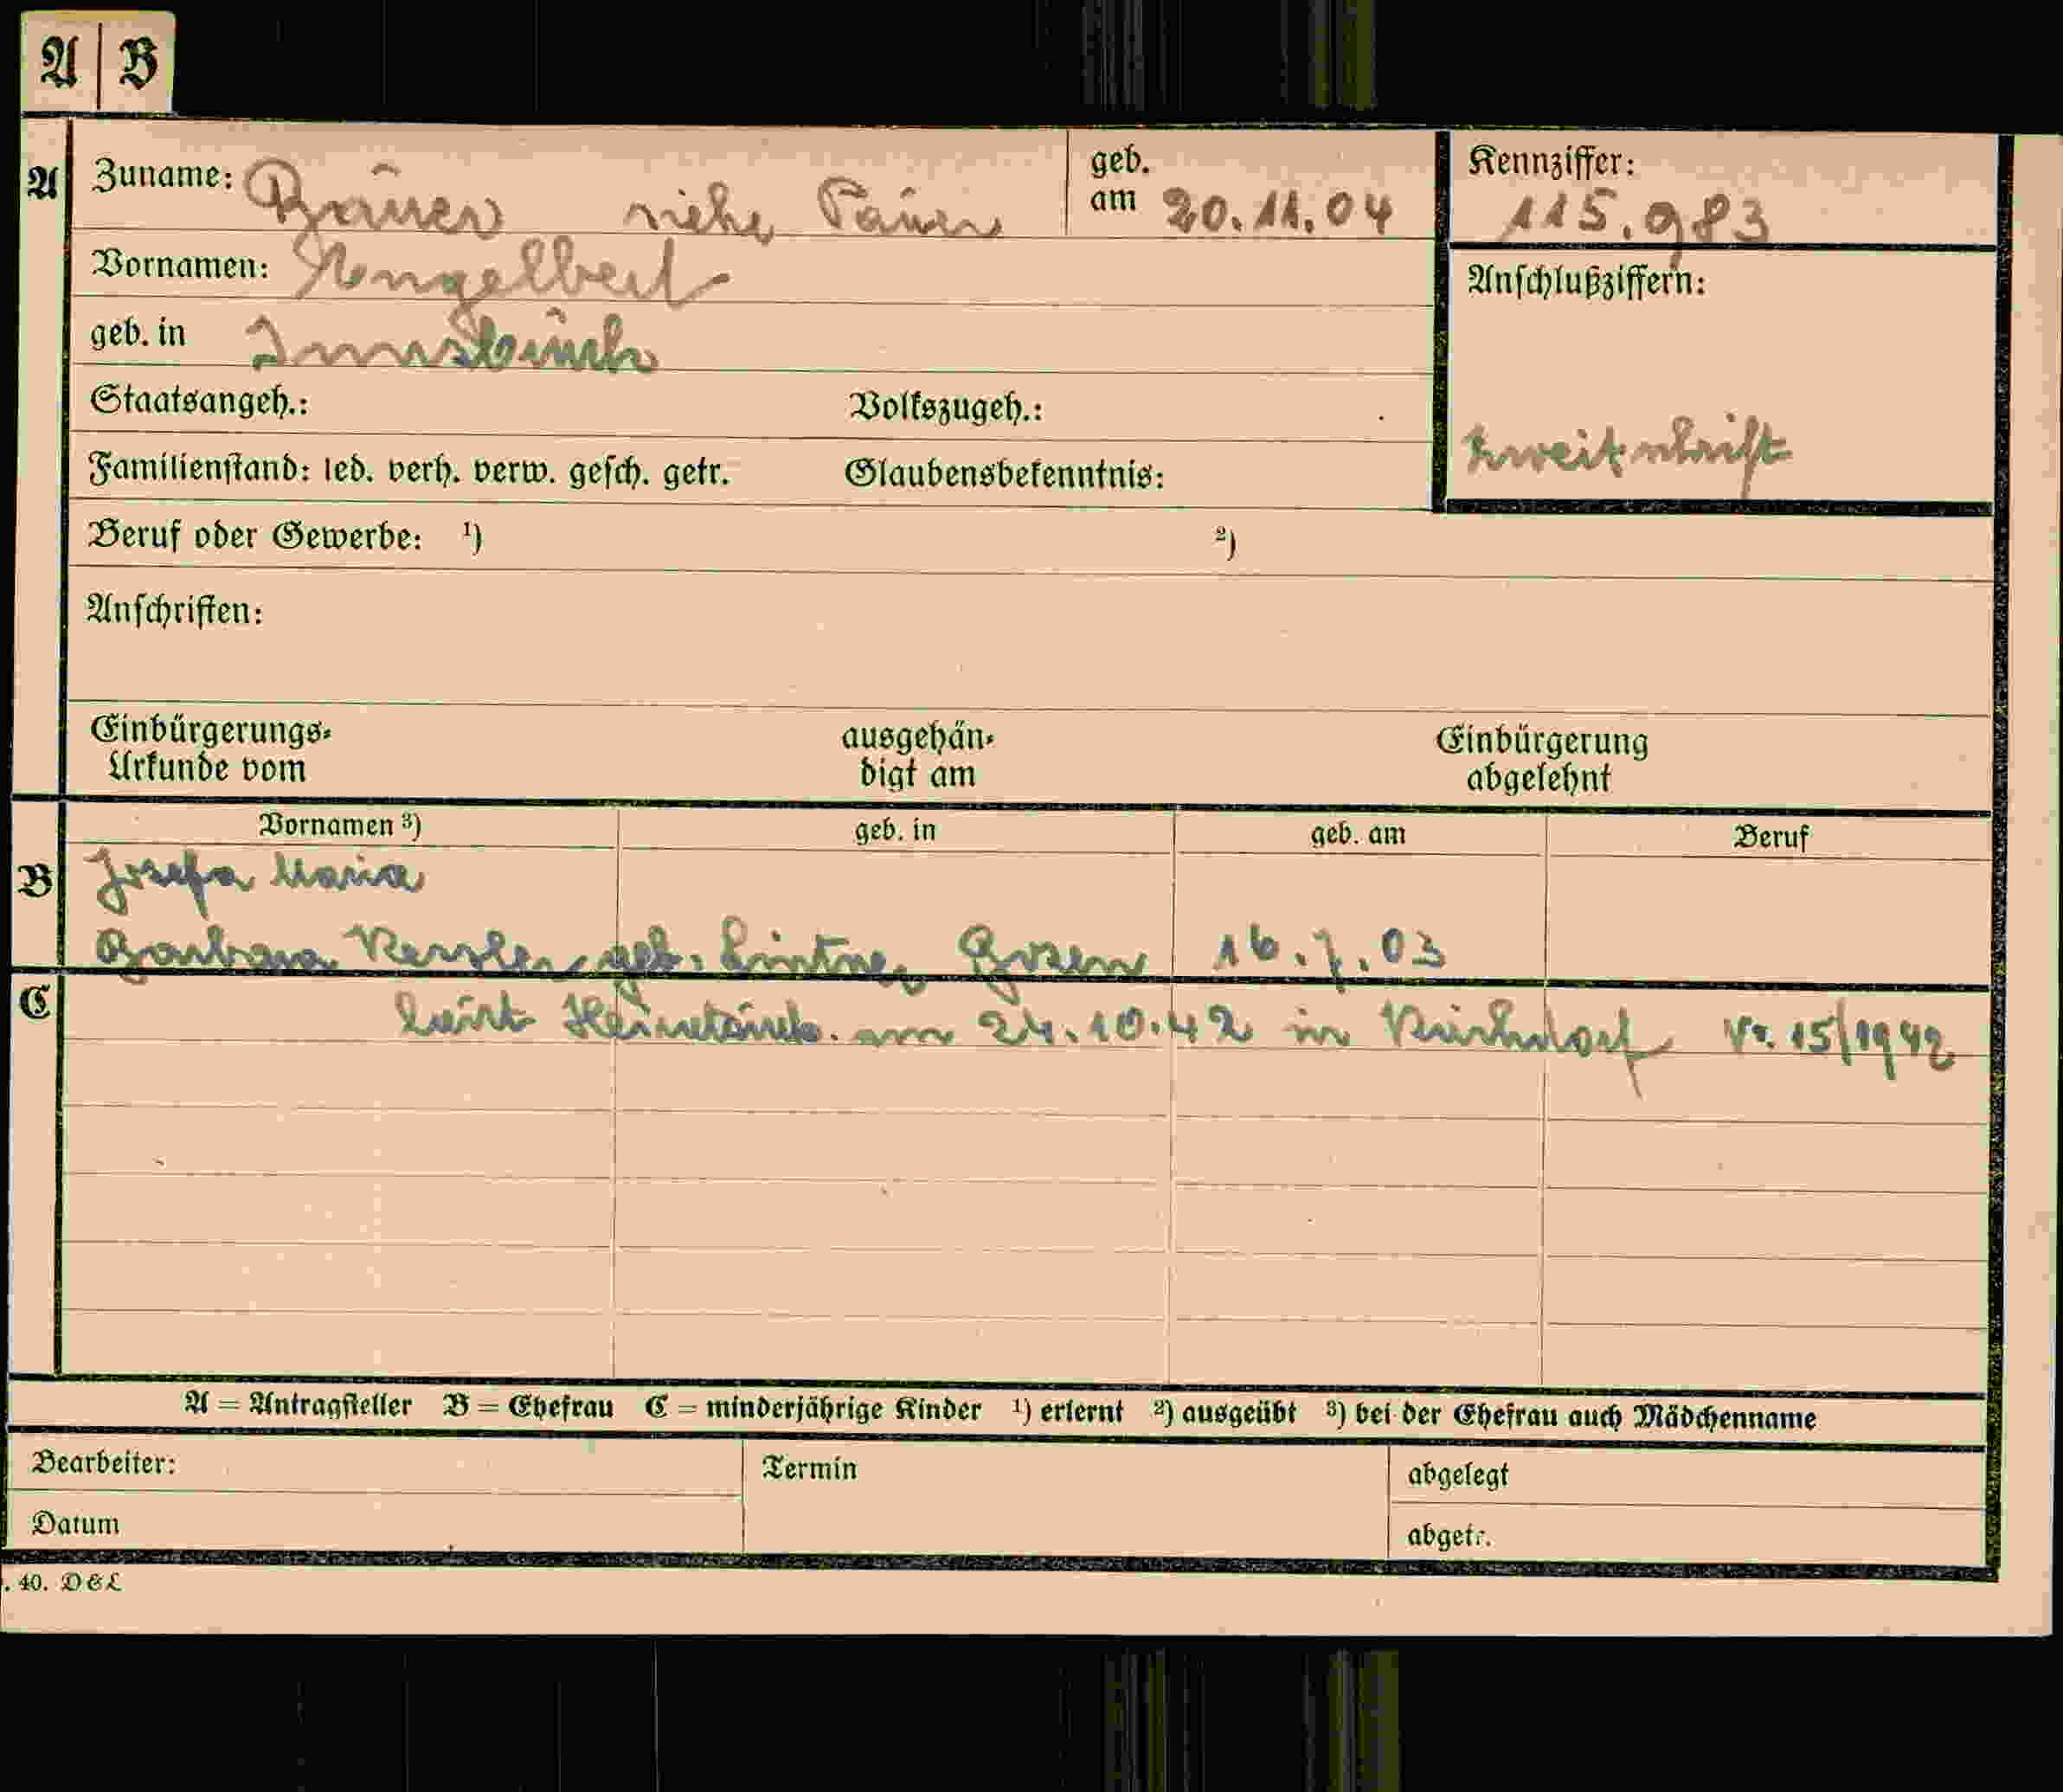 A B
A Zuname: Bauer siehe Pauer geb. am 20.11.04 Kennziffer: 115.983
Vornamen: Engelbert Anschlußziffern:
geb. in Innsbruck
Staatsangeh.: Volkszugeh.:
Zweitschrift
Familienstand: led. verh. verw. gesch. getr. Glaubensbekenntnis:
Beruf oder Gewerbe: ¹) ²)
Anschriften:
Einbürgerungs- ausgehän- Einbürgerung
Urkunde vom digt am abgelehnt
Vornamen ³) geb. in geb. am Beruf
B Josefa Maria
Barbara Kessler geb. Lintner Bozen 16.7.03
C laut Heiratsurk. am 24.10.42 in Nr. 15/1942
A = Antragsteller B = Ehefrau C = minderjährige Kinder ¹) erlernt ²) ausgeübt ³) bei der Ehefrau auch Mädchenname
Bearbeiter: Termin abgelegt
Datum abgetr.
. 40. D & L